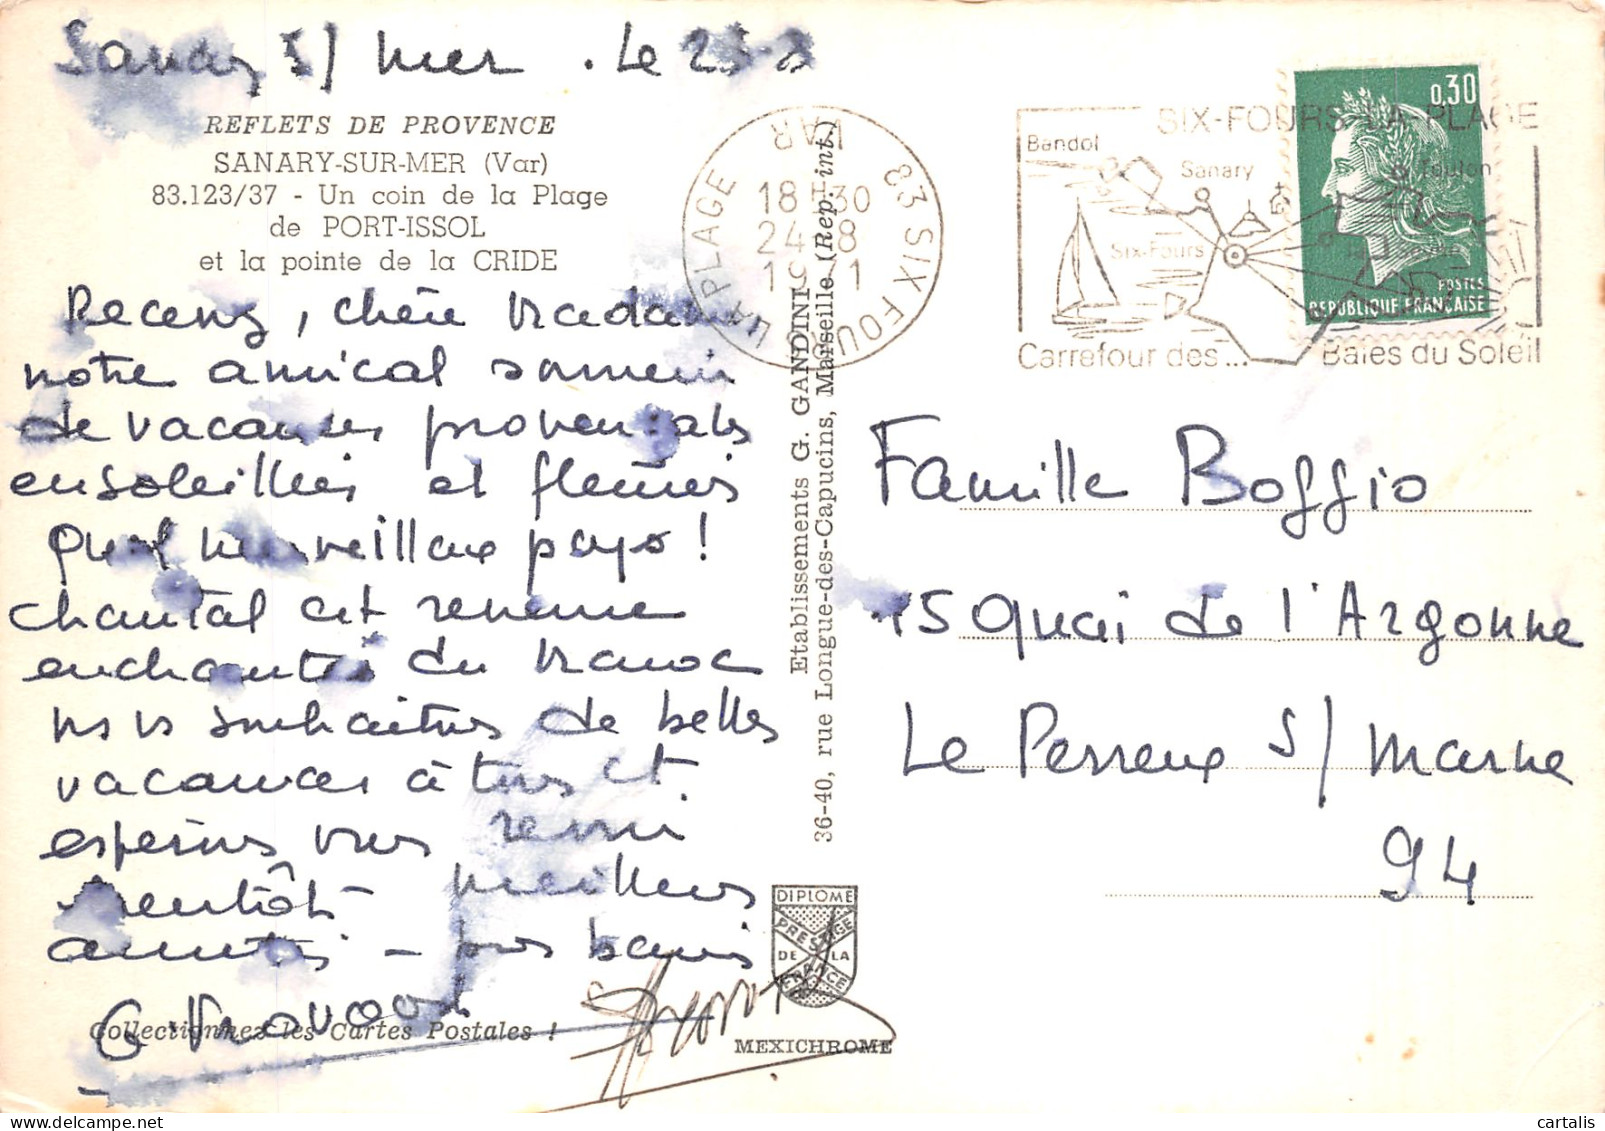 Sanary s/ mer . Le 23-8
REFLETS DE PROVENCE
SANARY-SUR-MER (Var)
83.123/37 - Un coin de la Plage
de PORT-ISSOL
et la pointe de la CRIDE
Recevez, chère Madame
notre amical souvenir
de vacances provençales
ensoleillées et fleuries
Quel merveilleux pays !
Chantal est revenue
enchantée du Maroc
ns vs souhaitons de belles
vacances à tous et
espérons vous revoir
bientôt - meilleures
amitiés - gros baisers
Collectionnez les Cartes Postales !
Etablissements G. GANDINI
36-40, rue Longue-des-Capucins, Marseille (Rep. int.)
DIPLOME
PRESTIGE
DE LA
FRANCE
MEXICHROME
83 SIX FOURS LA PLAGE
VAR
18H30
24-8
1971
SIX-FOURS-LA-PLAGE
Bandol
Sanary
Toulon
Six-Fours
Carrefour des...
Baies du Soleil
0,30
POSTES
REPUBLIQUE FRANÇAISE
Famille Boffio
15 Quai de l'Argonne
Le Perreux s/ Marne
94
cartalis